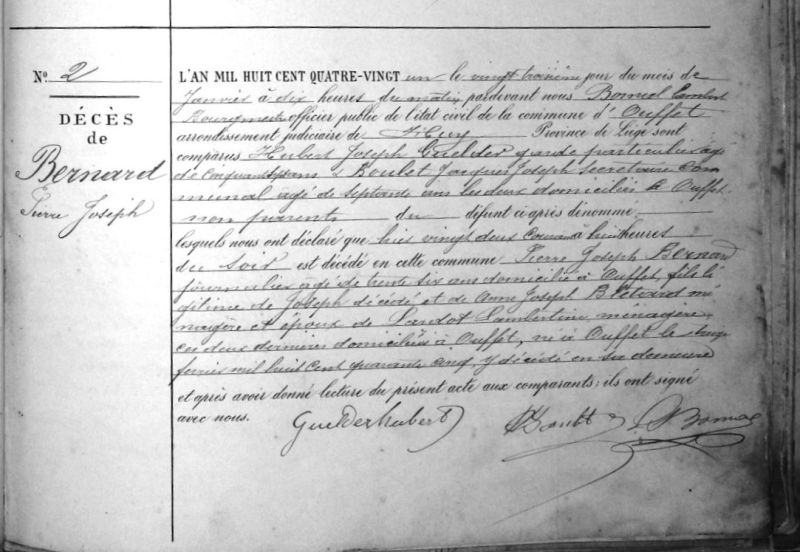 N° 2
DÉCÈS
de
Bernard
Pierre Joseph
L'AN MIL HUIT CENT QUATRE-VINGT un le vingt troisième jour du mois de
Janvier à dix heures du matin pardevant nous Bomal Lambert
Bourgmestre officier public de l'état civil de la commune d' Ouffet
arrondissement judiciaire de Huy Province de Liége sont
comparus Hubert Joseph Guelder garde particulier agé
de cinquante ans & Boulet Jacques Joseph Secretaire Com
munal agé de septante ans les deux domiciliés à Ouffet
non parents du défunt ci-après dénommé.
lesquels nous ont déclaré que hier vingt deux courant à huit heures
du soir est décédé en cette commune Pierre Joseph Bernard
journalier agé de trente six ans domicilié à Ouffet, fils lé
gitime de Joseph décédé et de Anne Joseph mé
nagère et époux de Lardot Lambertine menagère
ces deux dernières domiciliées à Ouffet, né à Ouffet le
fevrier mil huit cent quarante cinq, y décédé en sa demeure
et après avoir donné lecture du présent acte aux comparants; ils ont signé
avec nous.
Guelder hubert JJ Boulet L Bomal